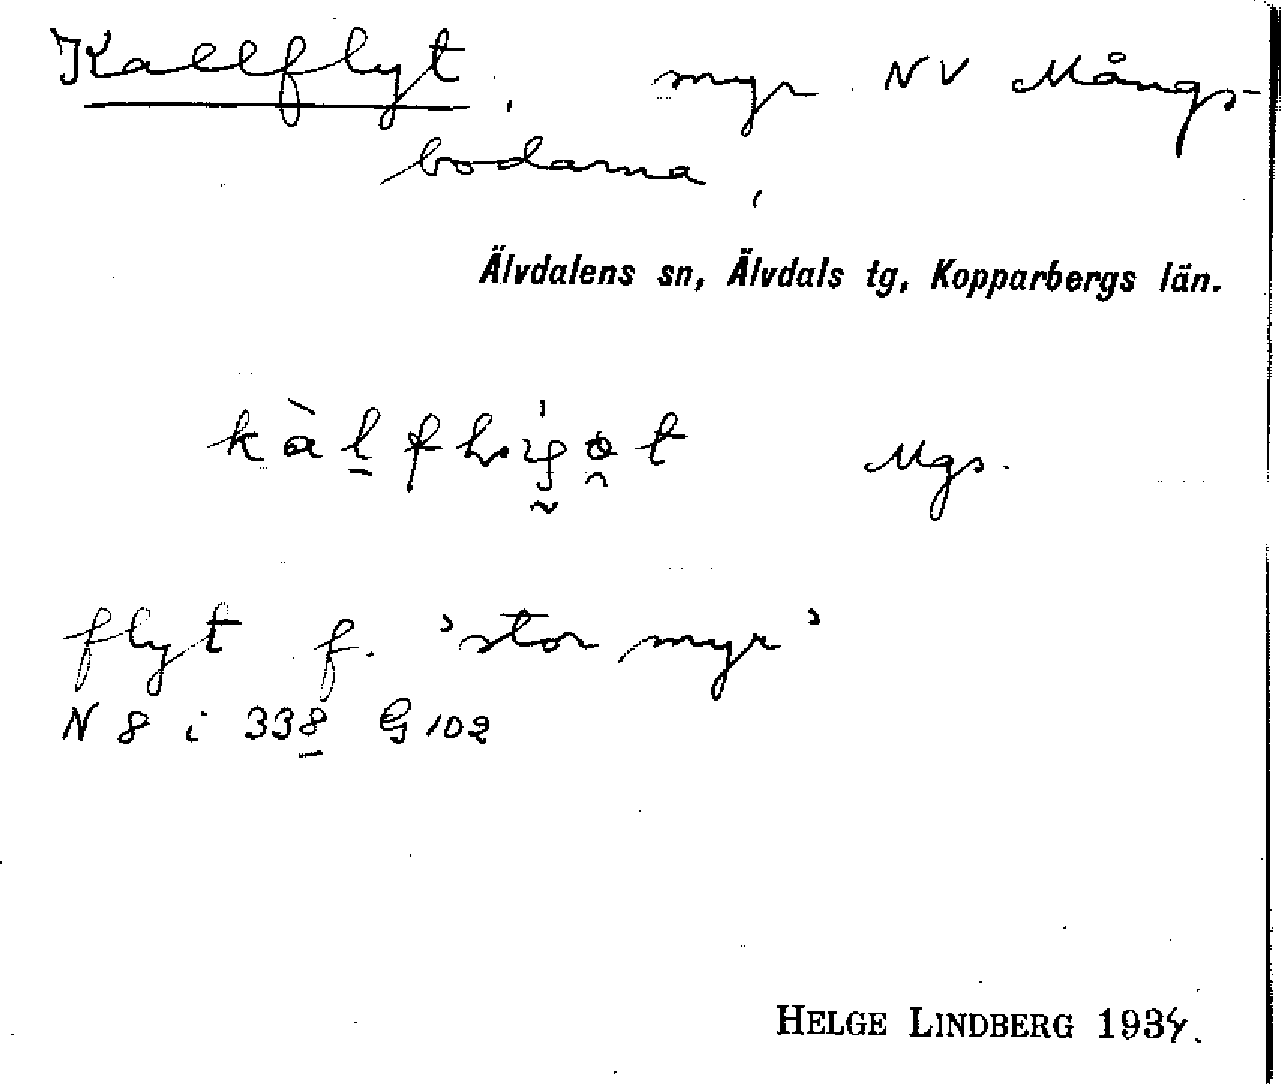 Kallflyt, myr NV Mångs-
bodarna,
Älvdalens sn, Älvdals tg, Kopparbergs län.
Mgs.
flyt f. 'stor myr'
N 8 i 338 G 102
HELGE LINDBERG 1934.